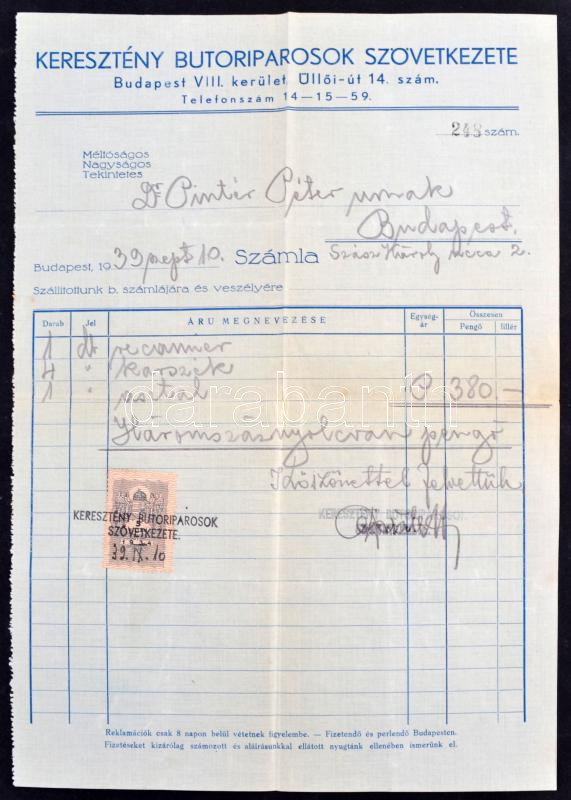 KERESZTÉNY BUTORIPAROSOK SZÖVETKEZETE
Budapest VIII. kerület, Üllői-út 14. szám.
Telefonszám 14—15—59.
248 szám.
Méltóságos
Nagyságos
Tekintetes
Dr Pintér Péter urnak
Budapest.
Budapest, 1939 szept 10. Számla
Szász Károly ucca 2.
Szállítottunk b. számlájára és veszélyére
Darab Jel ÁRU MEGNEVEZÉSE Egység-ár Összesen
Pengő fillér
1 dr recamier
4 " karszék
1 " asztal P 380.—
darabanth
Háromszáznyolcvan pengő
Köszönettel felvettük
KERESZTÉNY BUTORIPAROSOK
SZÖVETKEZETE.
39. IX. 10
Reklamációk csak 8 napon belül vétetnek figyelembe. — Fizetendő és perlendő Budapesten.
Fizetéseket kizárólag számozott és aláírásunkkal ellátott nyugtánk ellenében ismerünk el.